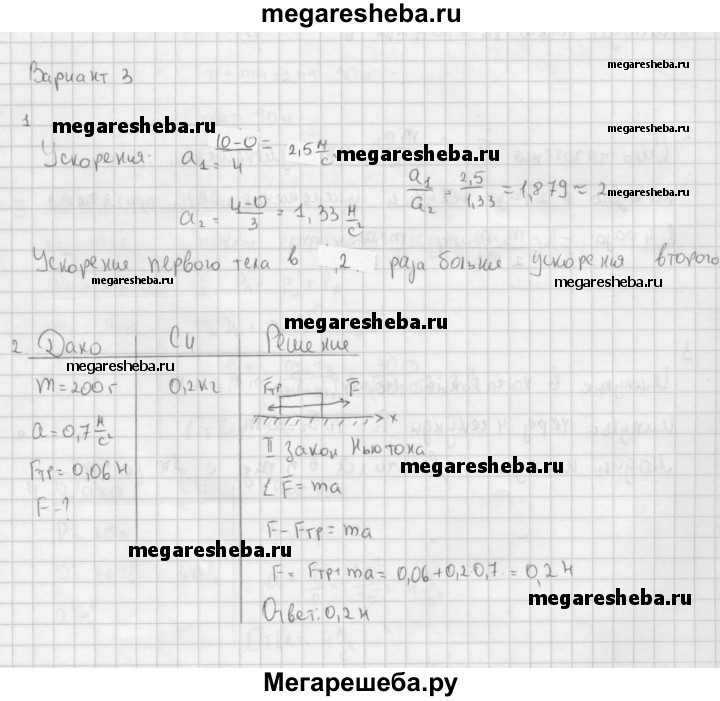 megaresheba.ru
Вариант 3
megaresheba.ru
1
megaresheba.ru
Ускорения: a₁ = (10-0)/4 = 2,5 м/с
megaresheba.ru
a₁/a₂ = 2,5/1,33 = 1,879 ≈ 2
megaresheba.ru
a₂ = (4-0)/3 = 1,33 м/с²
Ускорение первого тела в 2 раза больше ускорения второго
megaresheba.ru
megaresheba.ru
megaresheba.ru
2 Дано СИ Решение
megaresheba.ru
m = 200 г 0,2 кг Fтр F
a = 0,7 м/с² x
II Закон Ньютона
megaresheba.ru
Fтр = 0,06 Н
Σ F = ma
F - ?
F - Fтр = ma
megaresheba.ru
F = Fтр + ma = 0,06 + 0,2 0,7 = 0,2 Н
megaresheba.ru
Ответ: 0,2 Н
Мегарешеба.ру